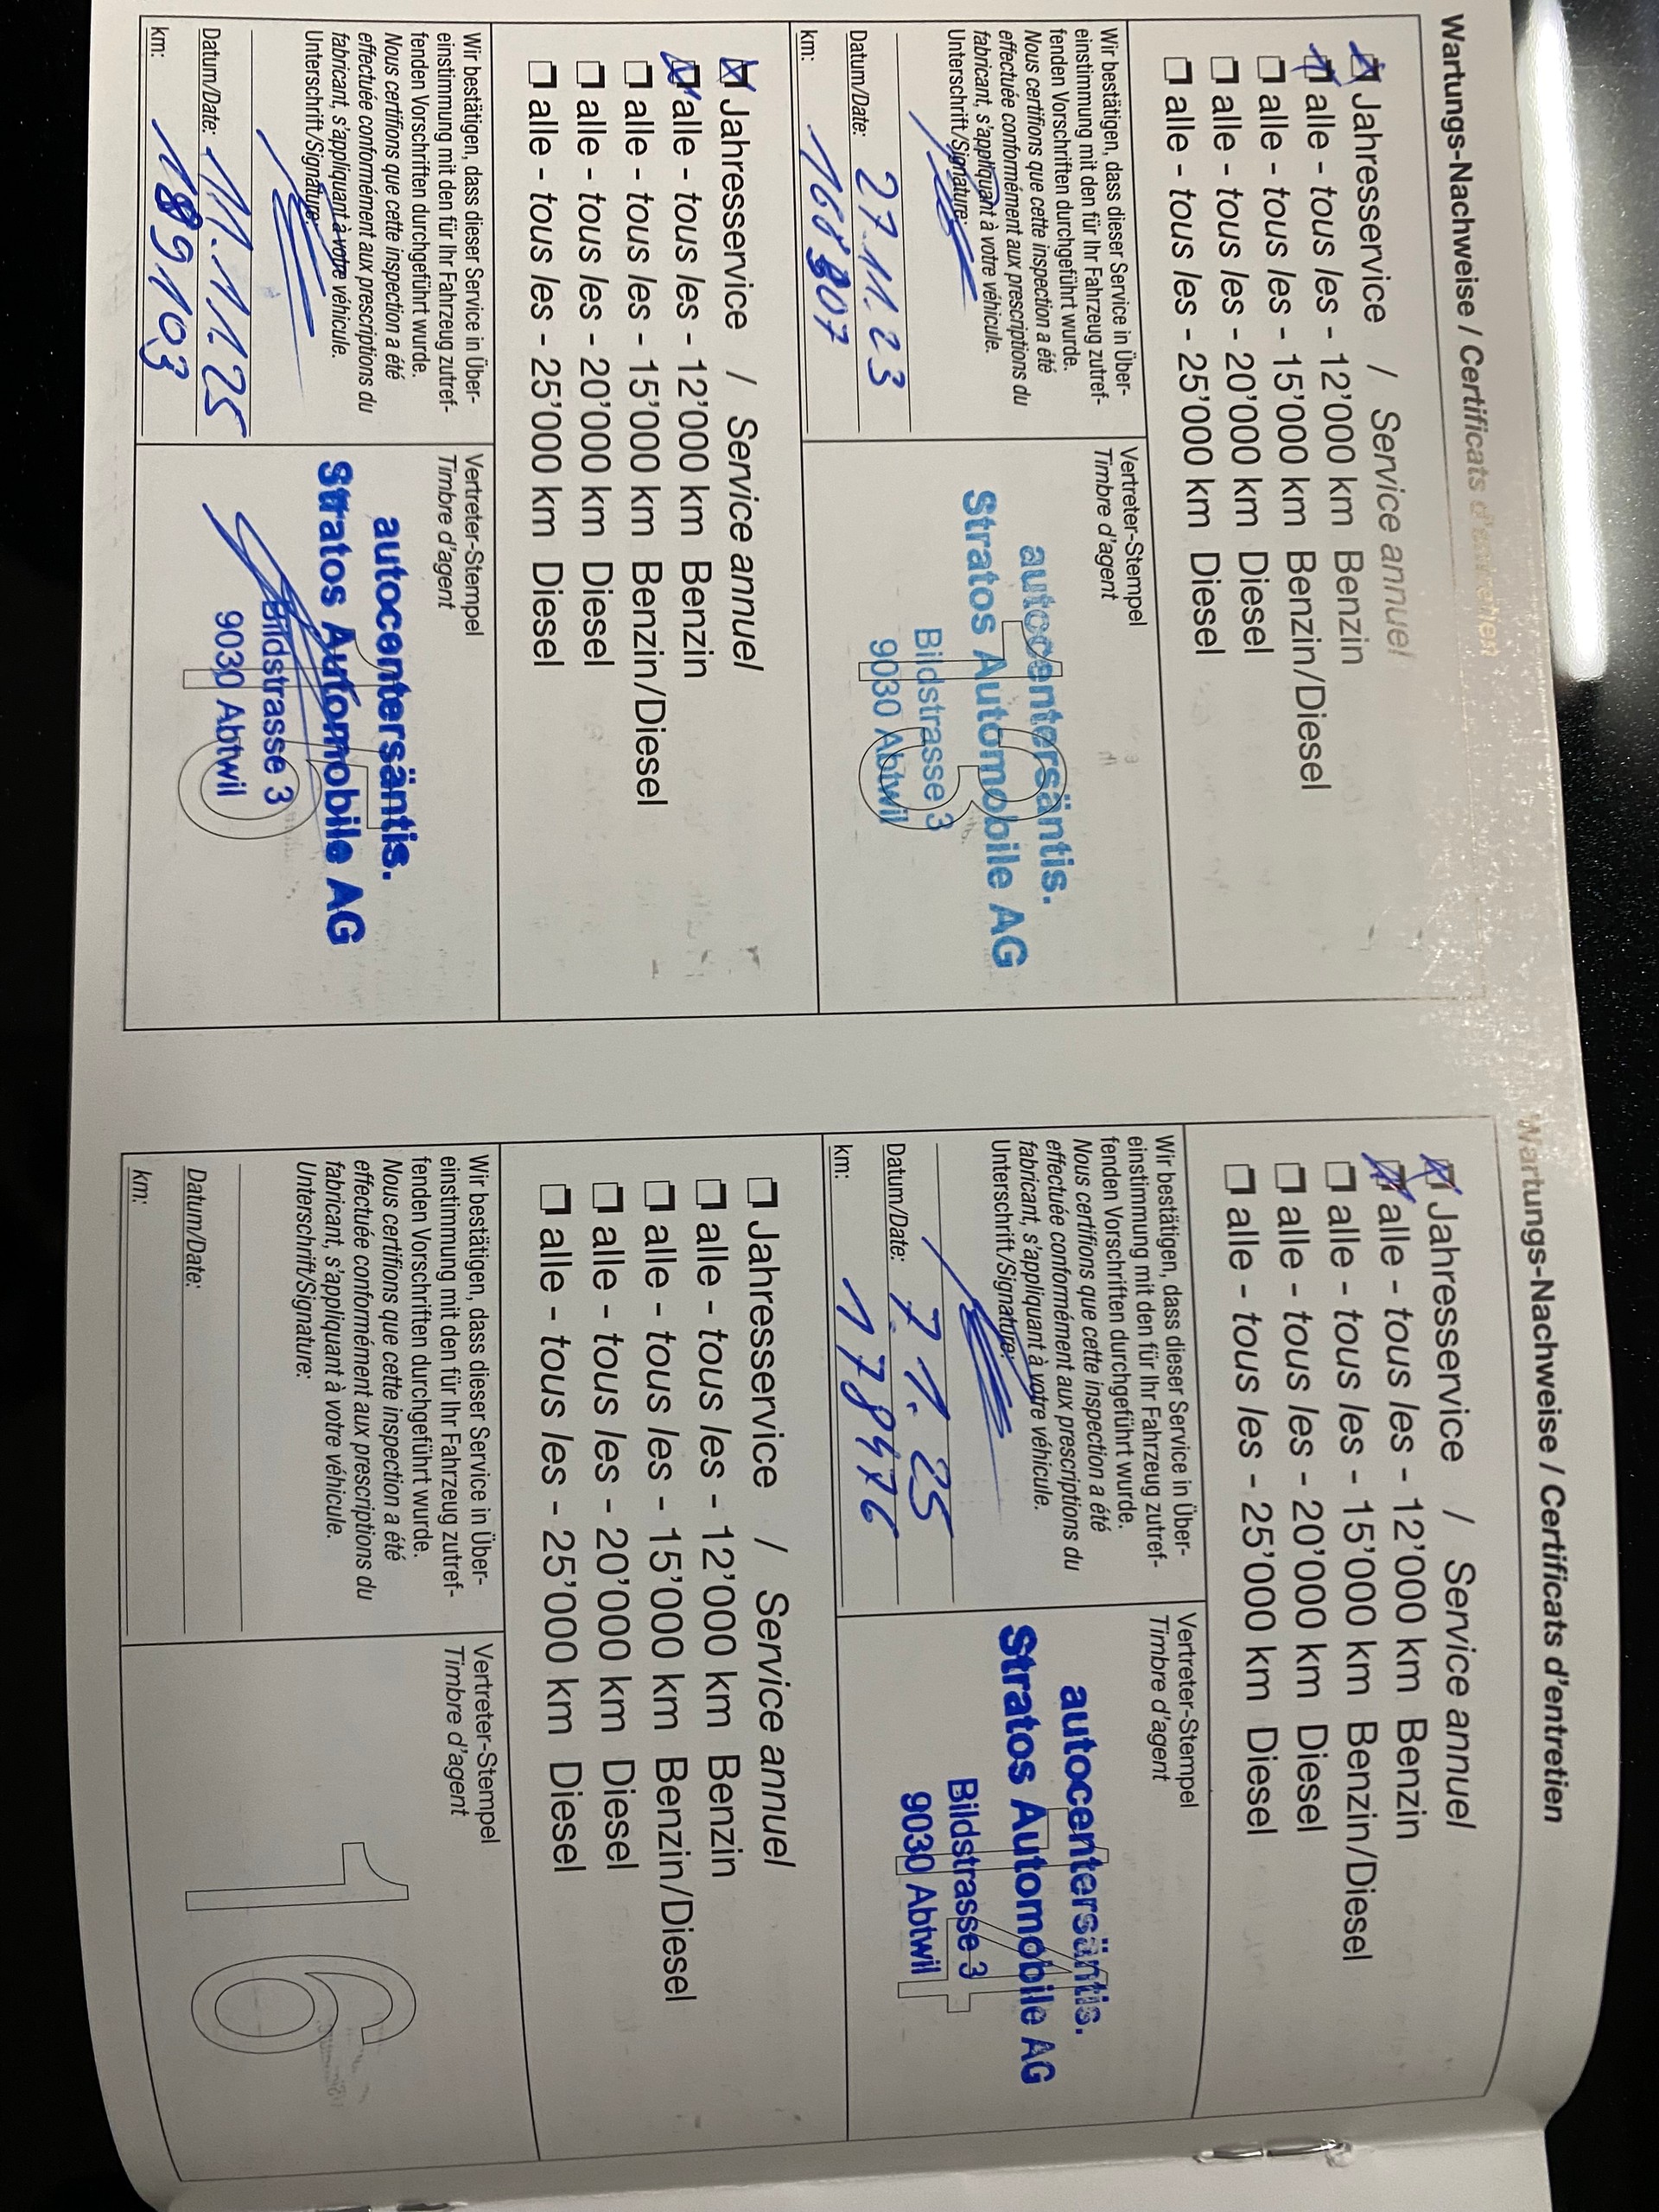 Wartungs-Nachweise / Certificats d'entretien
Jahresservice / Service annuel
alle - tous les - 12'000 km Benzin
alle - tous les - 15'000 km Benzin/Diesel
alle - tous les - 20'000 km Diesel
alle - tous les - 25'000 km Diesel
Wir bestätigen, dass dieser Service in Über-
einstimmung mit den für Ihr Fahrzeug zutref-
fenden Vorschriften durchgeführt wurde.
Nous certifions que cette inspection a été
effectuée conformément aux prescriptions du
fabricant, s'appliquant à votre véhicule.
Unterschrift/Signature:
Datum/Date: 27.11.23
km: 168807
Vertreter-Stempel
Timbre d'agent
13
autocentersäntis.
Stratos Automobile AG
Bildstrasse 3
9030 Abtwil
Jahresservice / Service annuel
alle - tous les - 12'000 km Benzin
alle - tous les - 15'000 km Benzin/Diesel
alle - tous les - 20'000 km Diesel
alle - tous les - 25'000 km Diesel
Wir bestätigen, dass dieser Service in Über-
einstimmung mit den für Ihr Fahrzeug zutref-
fenden Vorschriften durchgeführt wurde.
Nous certifions que cette inspection a été
effectuée conformément aux prescriptions du
fabricant, s'appliquant à votre véhicule.
Unterschrift/Signature:
Datum/Date: 11.11.25
km: 189103
Vertreter-Stempel
Timbre d'agent
15
autocentersäntis.
Stratos Automobile AG
Bildstrasse 3
9030 Abtwil
Wartungs-Nachweise / Certificats d'entretien
Jahresservice / Service annuel
alle - tous les - 12'000 km Benzin
alle - tous les - 15'000 km Benzin/Diesel
alle - tous les - 20'000 km Diesel
alle - tous les - 25'000 km Diesel
Wir bestätigen, dass dieser Service in Über-
einstimmung mit den für Ihr Fahrzeug zutref-
fenden Vorschriften durchgeführt wurde.
Nous certifions que cette inspection a été
effectuée conformément aux prescriptions du
fabricant, s'appliquant à votre véhicule.
Unterschrift/Signature:
Datum/Date: 7.1.25
km: 178476
Vertreter-Stempel
Timbre d'agent
14
autocentersäntis.
Stratos Automobile AG
Bildstrasse 3
9030 Abtwil
Jahresservice / Service annuel
alle - tous les - 12'000 km Benzin
alle - tous les - 15'000 km Benzin/Diesel
alle - tous les - 20'000 km Diesel
alle - tous les - 25'000 km Diesel
Wir bestätigen, dass dieser Service in Über-
einstimmung mit den für Ihr Fahrzeug zutref-
fenden Vorschriften durchgeführt wurde.
Nous certifions que cette inspection a été
effectuée conformément aux prescriptions du
fabricant, s'appliquant à votre véhicule.
Unterschrift/Signature:
Datum/Date:
km:
Vertreter-Stempel
Timbre d'agent
16